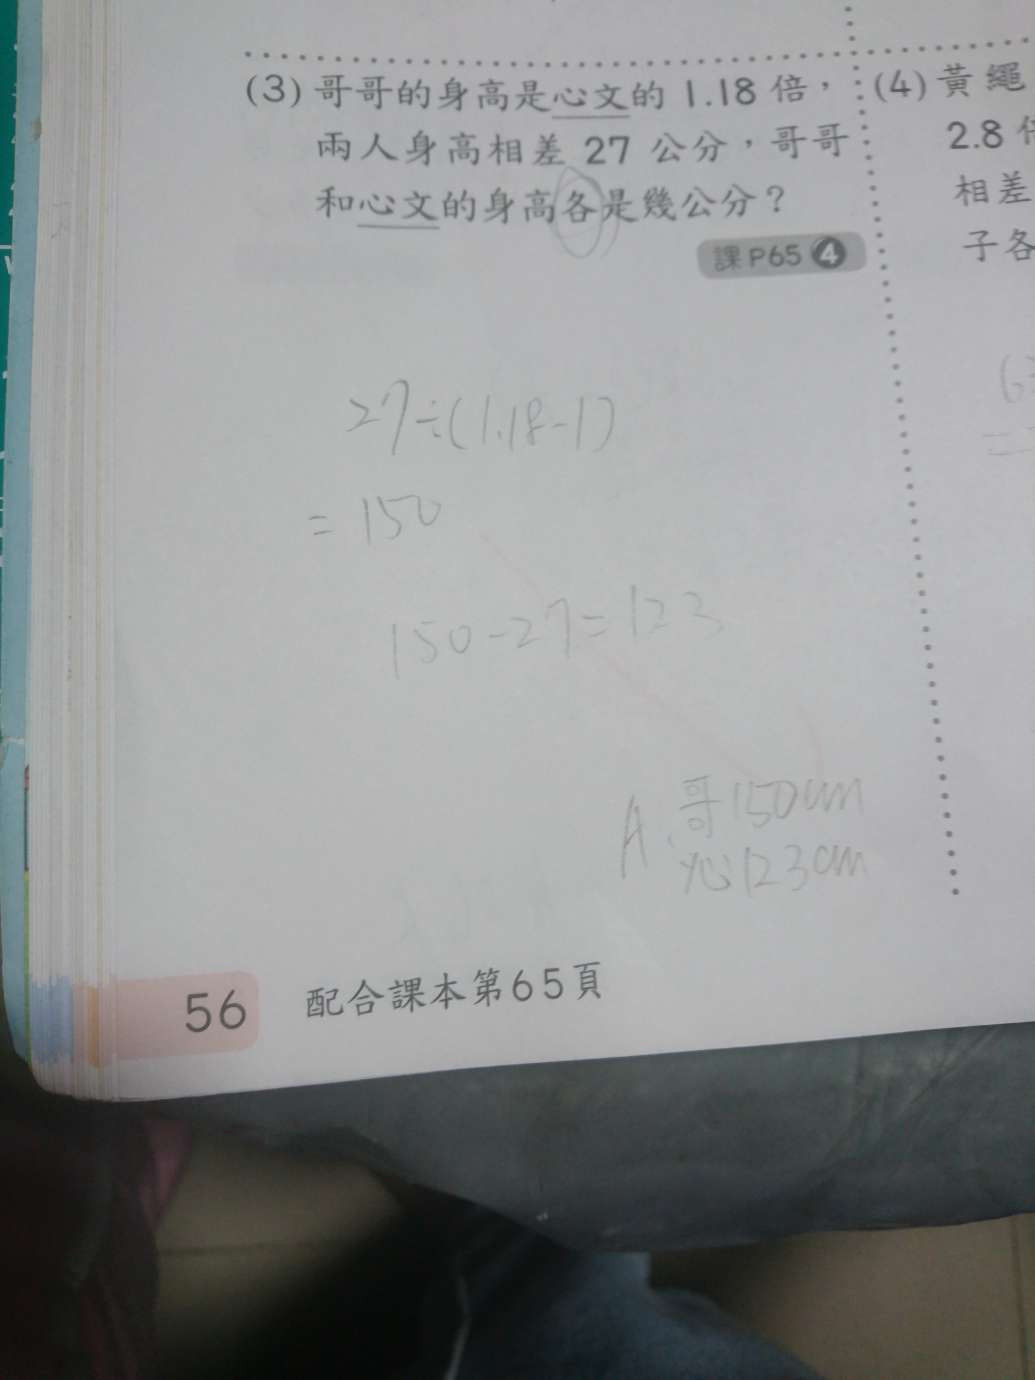 (3) 哥哥的身高是心文的 1.18 倍，
兩人身高相差 27 公分，哥哥
和心文的身高各是幾公分？
課P65 4
27÷(1.18-1)
=150
150-27=123
A、哥150cm
心123cm
(4) 黃繩
2.8
相差
子各
56 配合課本第65頁